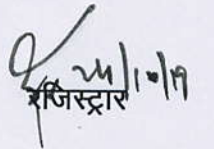 24/10/19
रजिस्ट्रार